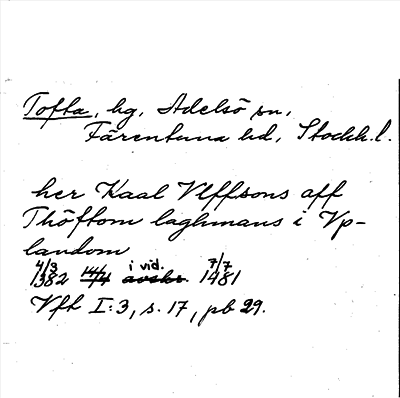 Tofta, hg, Adelsö sn,
Färentuna hd, Stockh. l.
her Kaal Vlffsons aff
Thöftom laghmans i Vp-
landom
4/3 1382 14/4 i vid. avskr. 7/7 1481
Vfh I:3, s. 17, pb 29.